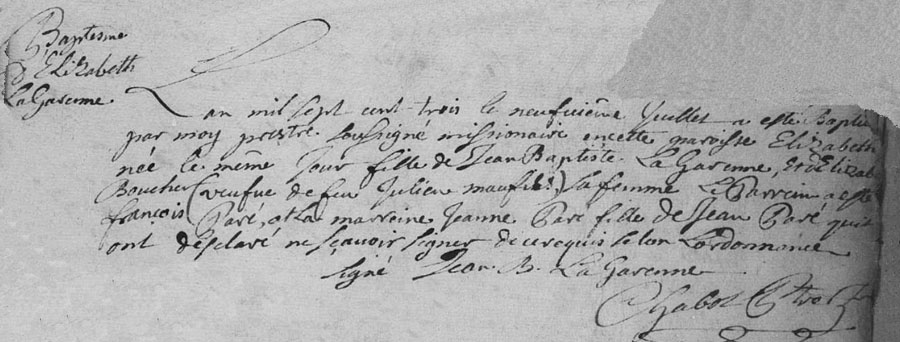 Baptesme
d'Elizabeth
La Garenne
L'an mil sept cent-trois le neufuième Juillet a esté Baptis
par moy prestre soussigné missionaire encette paroisse Elizabeth
née le même Jour fille de Jean Baptiste La Garenne, et dElizab
Boucher (veufue de feu Julien maufils) sa femme Le Parrein a esté
francois Paré, et La marreine Jeanne Paré fille de Jean Paré qui
ont desclaré ne sçavoir signer dece requis selon Lordonnance
signé Jean B. La Garenne
Chabot